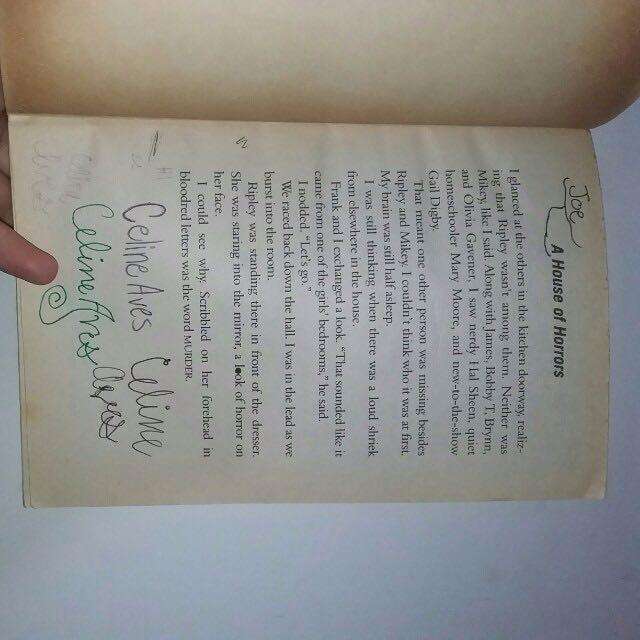 Joe
A House of Horrors
I glanced at the others in the kitchen doorway, realiz-
ing that Ripley wasn't among them. Neither was
Mikey, like I said. Along with James, Bobby T, Brynn,
and Olivia Gavener, I saw nerdy Hal Sheen, quiet
homeschooler Mary Moore, and new-to-the-show
Gail Digby.
That meant one other person was missing besides
Ripley and Mikey. I couldn't think who it was at first.
My brain was still half asleep.
I was still thinking when there was a loud shriek
from elsewhere in the house.
Frank and I exchanged a look. "That sounded like it
came from one of the girls' bedrooms," he said.
I nodded. "Let's go."
We raced back down the hall. I was in the lead as we
burst into the room.
Ripley was standing there in front of the dresser.
She was staring into the mirror, a look of horror on
her face.
I could see why. Scribbled on her forehead in
bloodred letters was the word MURDER.
Celine Aves Celine
Celine Aves